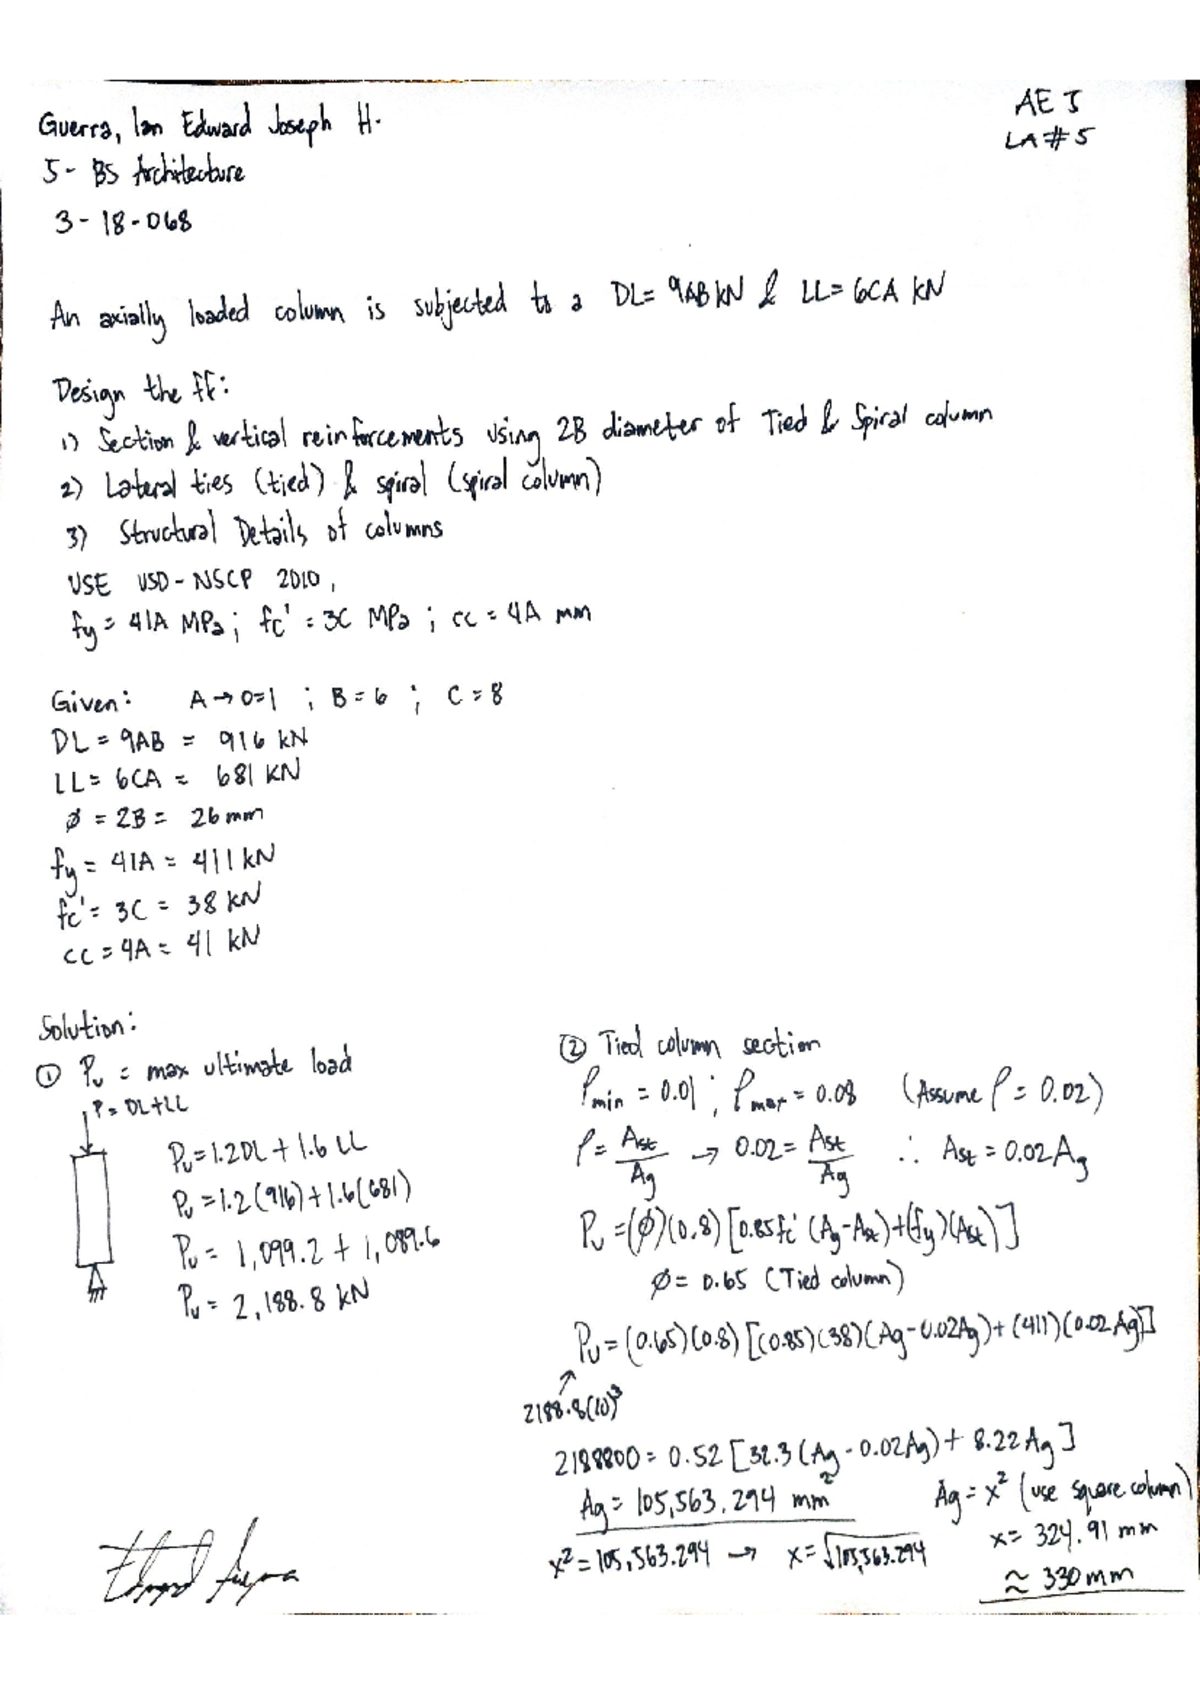 Guerra, Ian Edward Joseph H.
AE 5
LA # 5
5 - BS Architecture
3 - 18 - 068
An axially loaded column is subjected to a DL= 9AB kN & LL= 6CA kN
Design the ff:
1) Section & vertical reinforcements using 2B diameter of Tied & Spiral column
2) Lateral ties (tied) & spiral (spiral column)
3) Structural Details of columns
USE USD - NSCP 2010,
fy = 41A MPa; fc' = 3C MPa ; cc = 4A mm
Given: A → 0=1 ; B = 6 ; C = 8
DL = 9AB = 916 kN
LL = 6CA = 681 KN
ø = 2B = 26 mm
fy = 41A = 411 kN
fc' = 3C = 38 kN
cc = 4A = 41 kN
Solution:
① Pu = max ultimate load
P = DL+LL
Pu = 1.2DL + 1.6 LL
Pu = 1.2 (916) + 1.6 (681)
Pu = 1,099.2 + 1,089.6
Pu = 2,188.8 kN
② Tied column section
ρmin = 0.01 ; ρmax = 0.08 (Assume ρ = 0.02)
ρ = Ast/Ag → 0.02 = Ast/Ag ∴ Ast = 0.02 Ag
Pu = (ø)(0.8) [0.85fc' (Ag - Ast) + (fy)(Ast)]
ø = 0.65 (Tied column)
Pu = (0.65)(0.8) [(0.85)(38)(Ag - 0.02Ag) + (411)(0.02 Ag)]
2188.8(10)³
2188800 = 0.52 [32.3 (Ag - 0.02Ag) + 8.22 Ag]
Ag = 105,563.294 mm²
x² = 105,563.294 → x = √105,563.294
Ag = x² (use square column)
x = 324.91 mm
≈ 330 mm